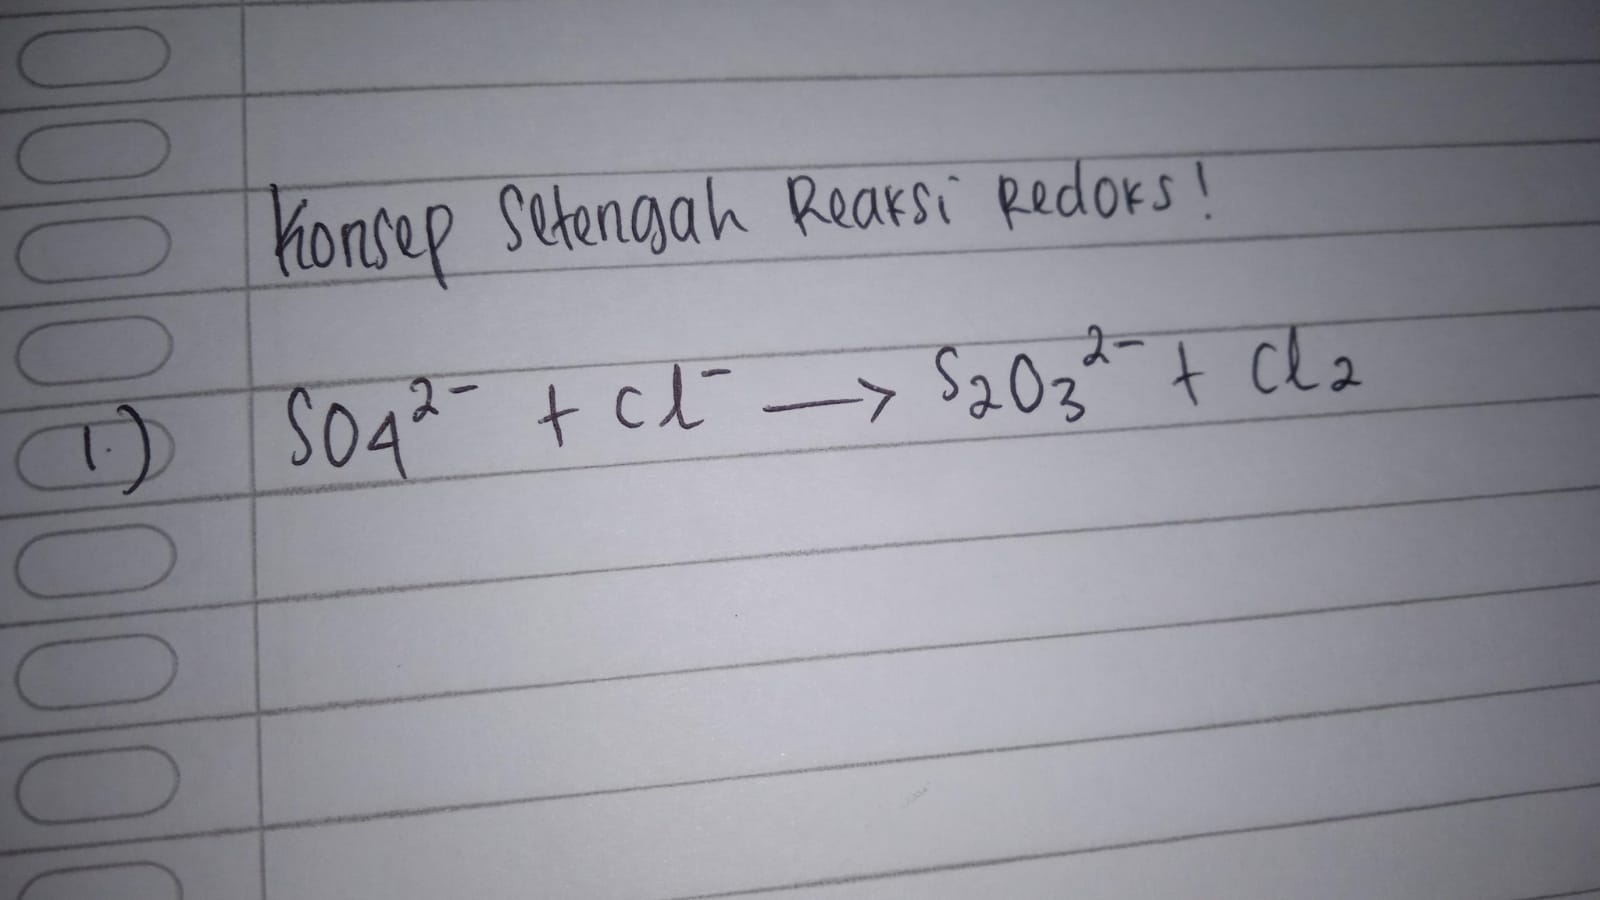 Konsep Setengah Reaksi Redoks!
1.) SO₄²⁻ + Cl⁻ → S₂O₃²⁻ + Cl₂